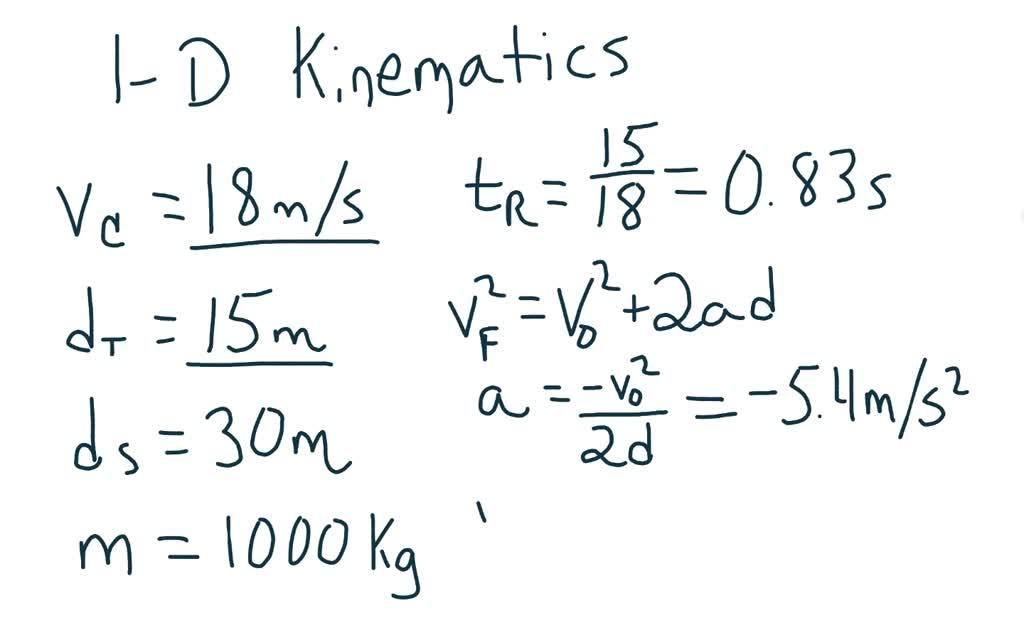 1-D Kinematics
Vc = 18m/s
dT = 15m
ds = 30m
m = 1000 Kg
tR = 15/18 = 0.83s
VF² = V0² + 2ad
a = -v0²/2d = -5.4m/s²